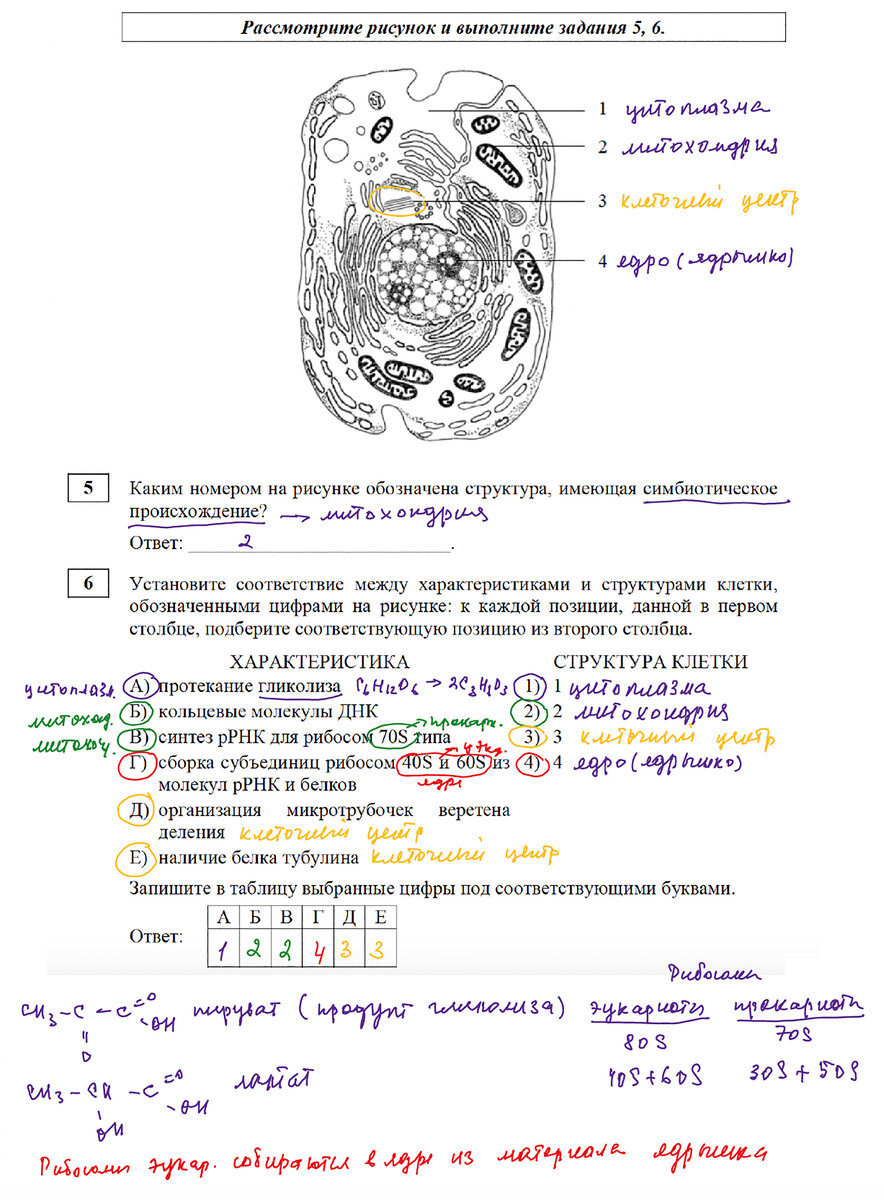 Рассмотрите рисунок и выполните задания 5, 6.
1 цитоплазма
2 митохондрия
3 клеточный центр
4 ядро (ядрышко)
5 Каким номером на рисунке обозначена структура, имеющая симбиотическое
происхождение? → митохондрия
Ответ: 2.
6 Установите соответствие между характеристиками и структурами клетки,
обозначенными цифрами на рисунке: к каждой позиции, данной в первом
столбце, подберите соответствующую позицию из второго столбца.
ХАРАКТЕРИСТИКА СТРУКТУРА КЛЕТКИ
цитоплазм. А) протекание гликолиза C₆H₁₂O₆ → 2C₃H₄O₃ 1) 1 цитоплазма
митохонд. Б) кольцевые молекулы ДНК → прокари. 2) 2 митохондрия
митохон. В) синтез рРНК для рибосом 70S типа 3) 3 клеточный центр
Г) сборка субъединиц рибосом 40S и 60S из 4) 4 ядро (ядрышко)
молекул рРНК и белков ядре
Д) организация микротрубочек веретена
деления клеточный центр
Е) наличие белка тубулина клеточный центр
Запишите в таблицу выбранные цифры под соответствующими буквами.
А Б В Г Д Е
Ответ: 1 2 2 4 3 3
Рибосомы
CH₃-C-C=O OH пируват (продукт гликолиза) эукариоты прокариоты
O 80S 70S
CH₃-CH-C=O OH лактат 40S+60S 30S+50S
OH
Рибосомы эукар. собираются в ядре из материала ядрышка